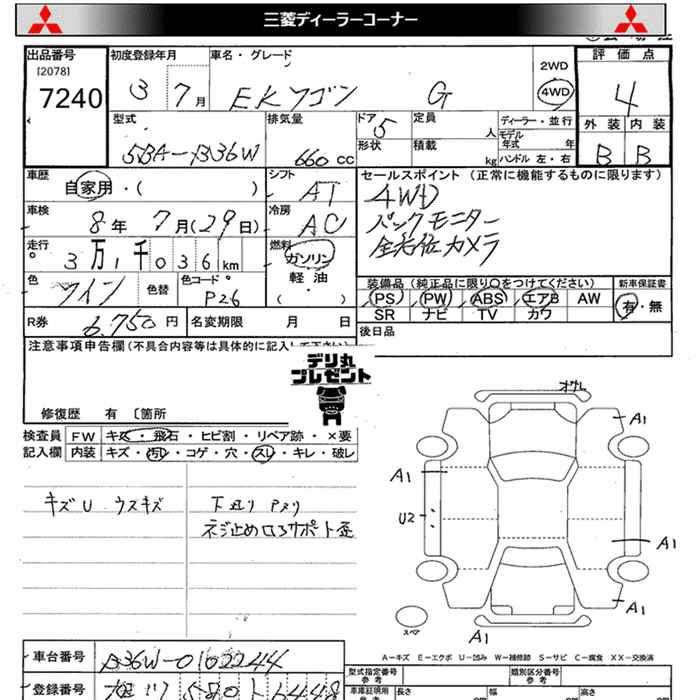 三菱ディーラーコーナー
出品番号 初度登録年月 車名・グレード 2WD 評価点
[2078]
7240 3 7月 EKワゴン G 4WD 4
型式 排気量 ドア 定員 ディーラー・並行 外装 内装
5BA-B36W 660 CC 5 人 モデル年式 年 B B
形状 積載 kg ハンドル 左・右
車歴 シフト セールスポイント (正常に機能するものに限ります)
自家用・( ) AT 4WD
車検 8年7月(29日) 冷房 AC バックモニター
走行 3万1千036km 燃料 ガソリン 全方位カメラ
軽油
( )
色 ワイン 色替 色コード P26
装備品 (純正品に限り○をつけてください) 新車保証書
PS PW ABS エアB AW 有・無
SR ナビ TV カワ
R券 6,750円 名変期限 月 日 後日品
注意事項申告欄(不具合内容等は具体的に記入して下さい)
デリ丸
プレゼント
修復歴 有 〔箇所
検査員 FW キズ・飛石・ヒビ割・リペア跡・×要
記入欄 内装 キズ・汚レ・コゲ・穴・スレ・キレ・破レ
キズU ウスキズ
下廻り Pメリ
オサレ
A1
A1
U2
A1
A1
スペア
A1
A-キズ E-エクボ U-凹み W-補修跡 S-サビ C-腐食 XX-交換済
車台番号 B36W-0102244
型式指定番号 類別区分番号
参考 参考
登録番号
車庫証明用 長さ 幅 高さ